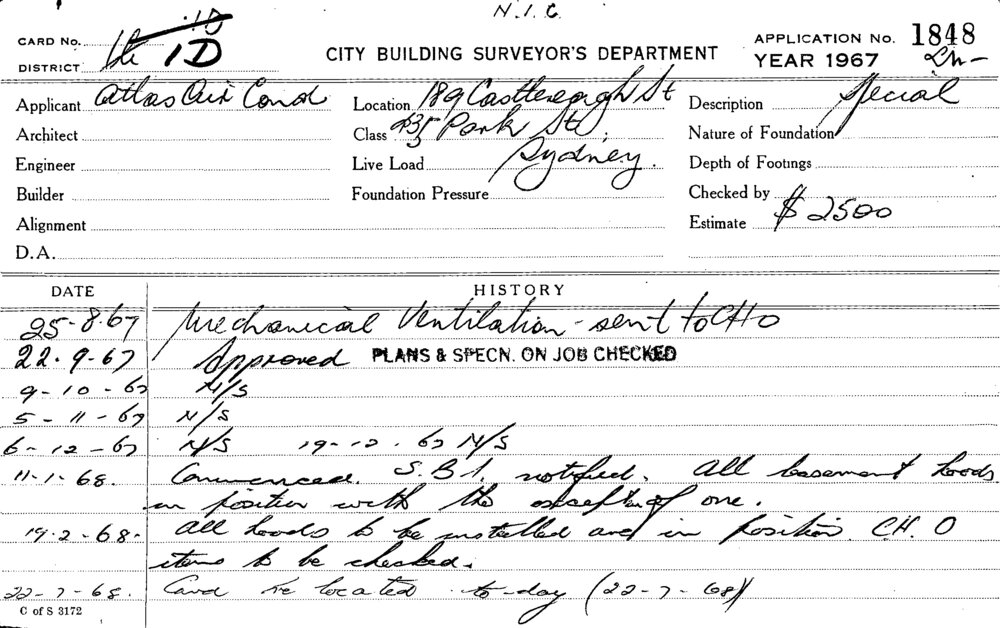 N.I.C.
CARD No. 1D
DISTRICT 1D
CITY BUILDING SURVEYOR'S DEPARTMENT
APPLICATION No. 1848
YEAR 1967
Applicant Atlas Air Cond
Location 189 Castlereagh St
Description Special
Architect
Class 235 Park St,
Nature of Foundation
Engineer
Live Load Sydney.
Depth of Footings
Builder
Foundation Pressure
Checked by
Alignment
Estimate $2500
D.A.
DATE HISTORY
25-8.67 Mechanical Ventilation - sent to CHO
22.9.67 Approved PLANS & SPECN. ON JOB CHECKED
9-10-67 N/S
5-11-67 N/S
6-12-67 N/S 19-12.67 N/S
11-1-68. Commenced. S.B.I. notified. All basement hoods
in position with the exception of one.
19.2-68. All hoods to be installed and in position. C.H.O
items to be checked.
22-7-68. Card re located to-day (22-7-68)
C of S 3172